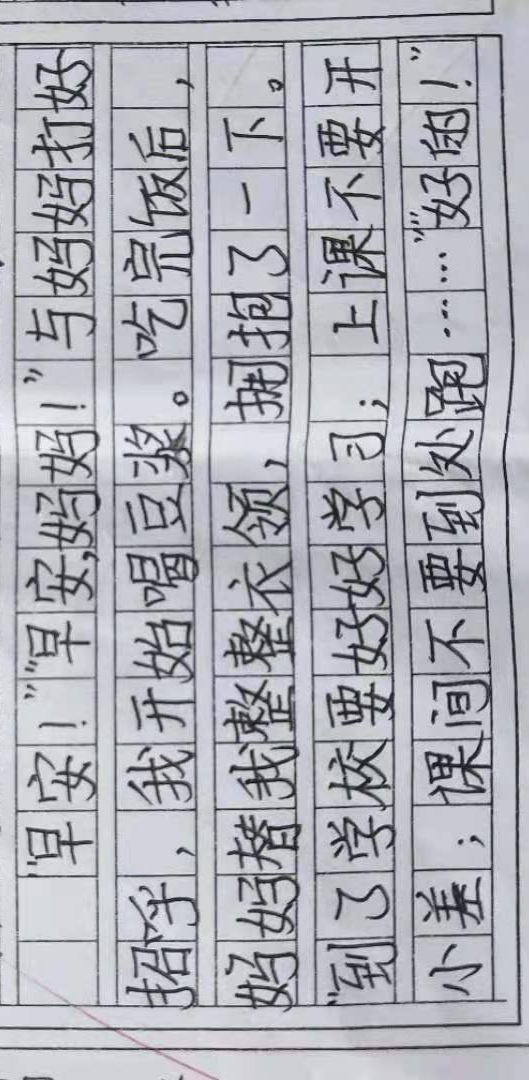 "早安！""早安,妈妈！"与妈妈打好
招呼，我开始喝豆浆。吃完饭后，
妈妈替我整整衣领，拥抱了一下。
"到了学校要好好学习；上课不要开
小差；课间不要到处跑……""好的！"